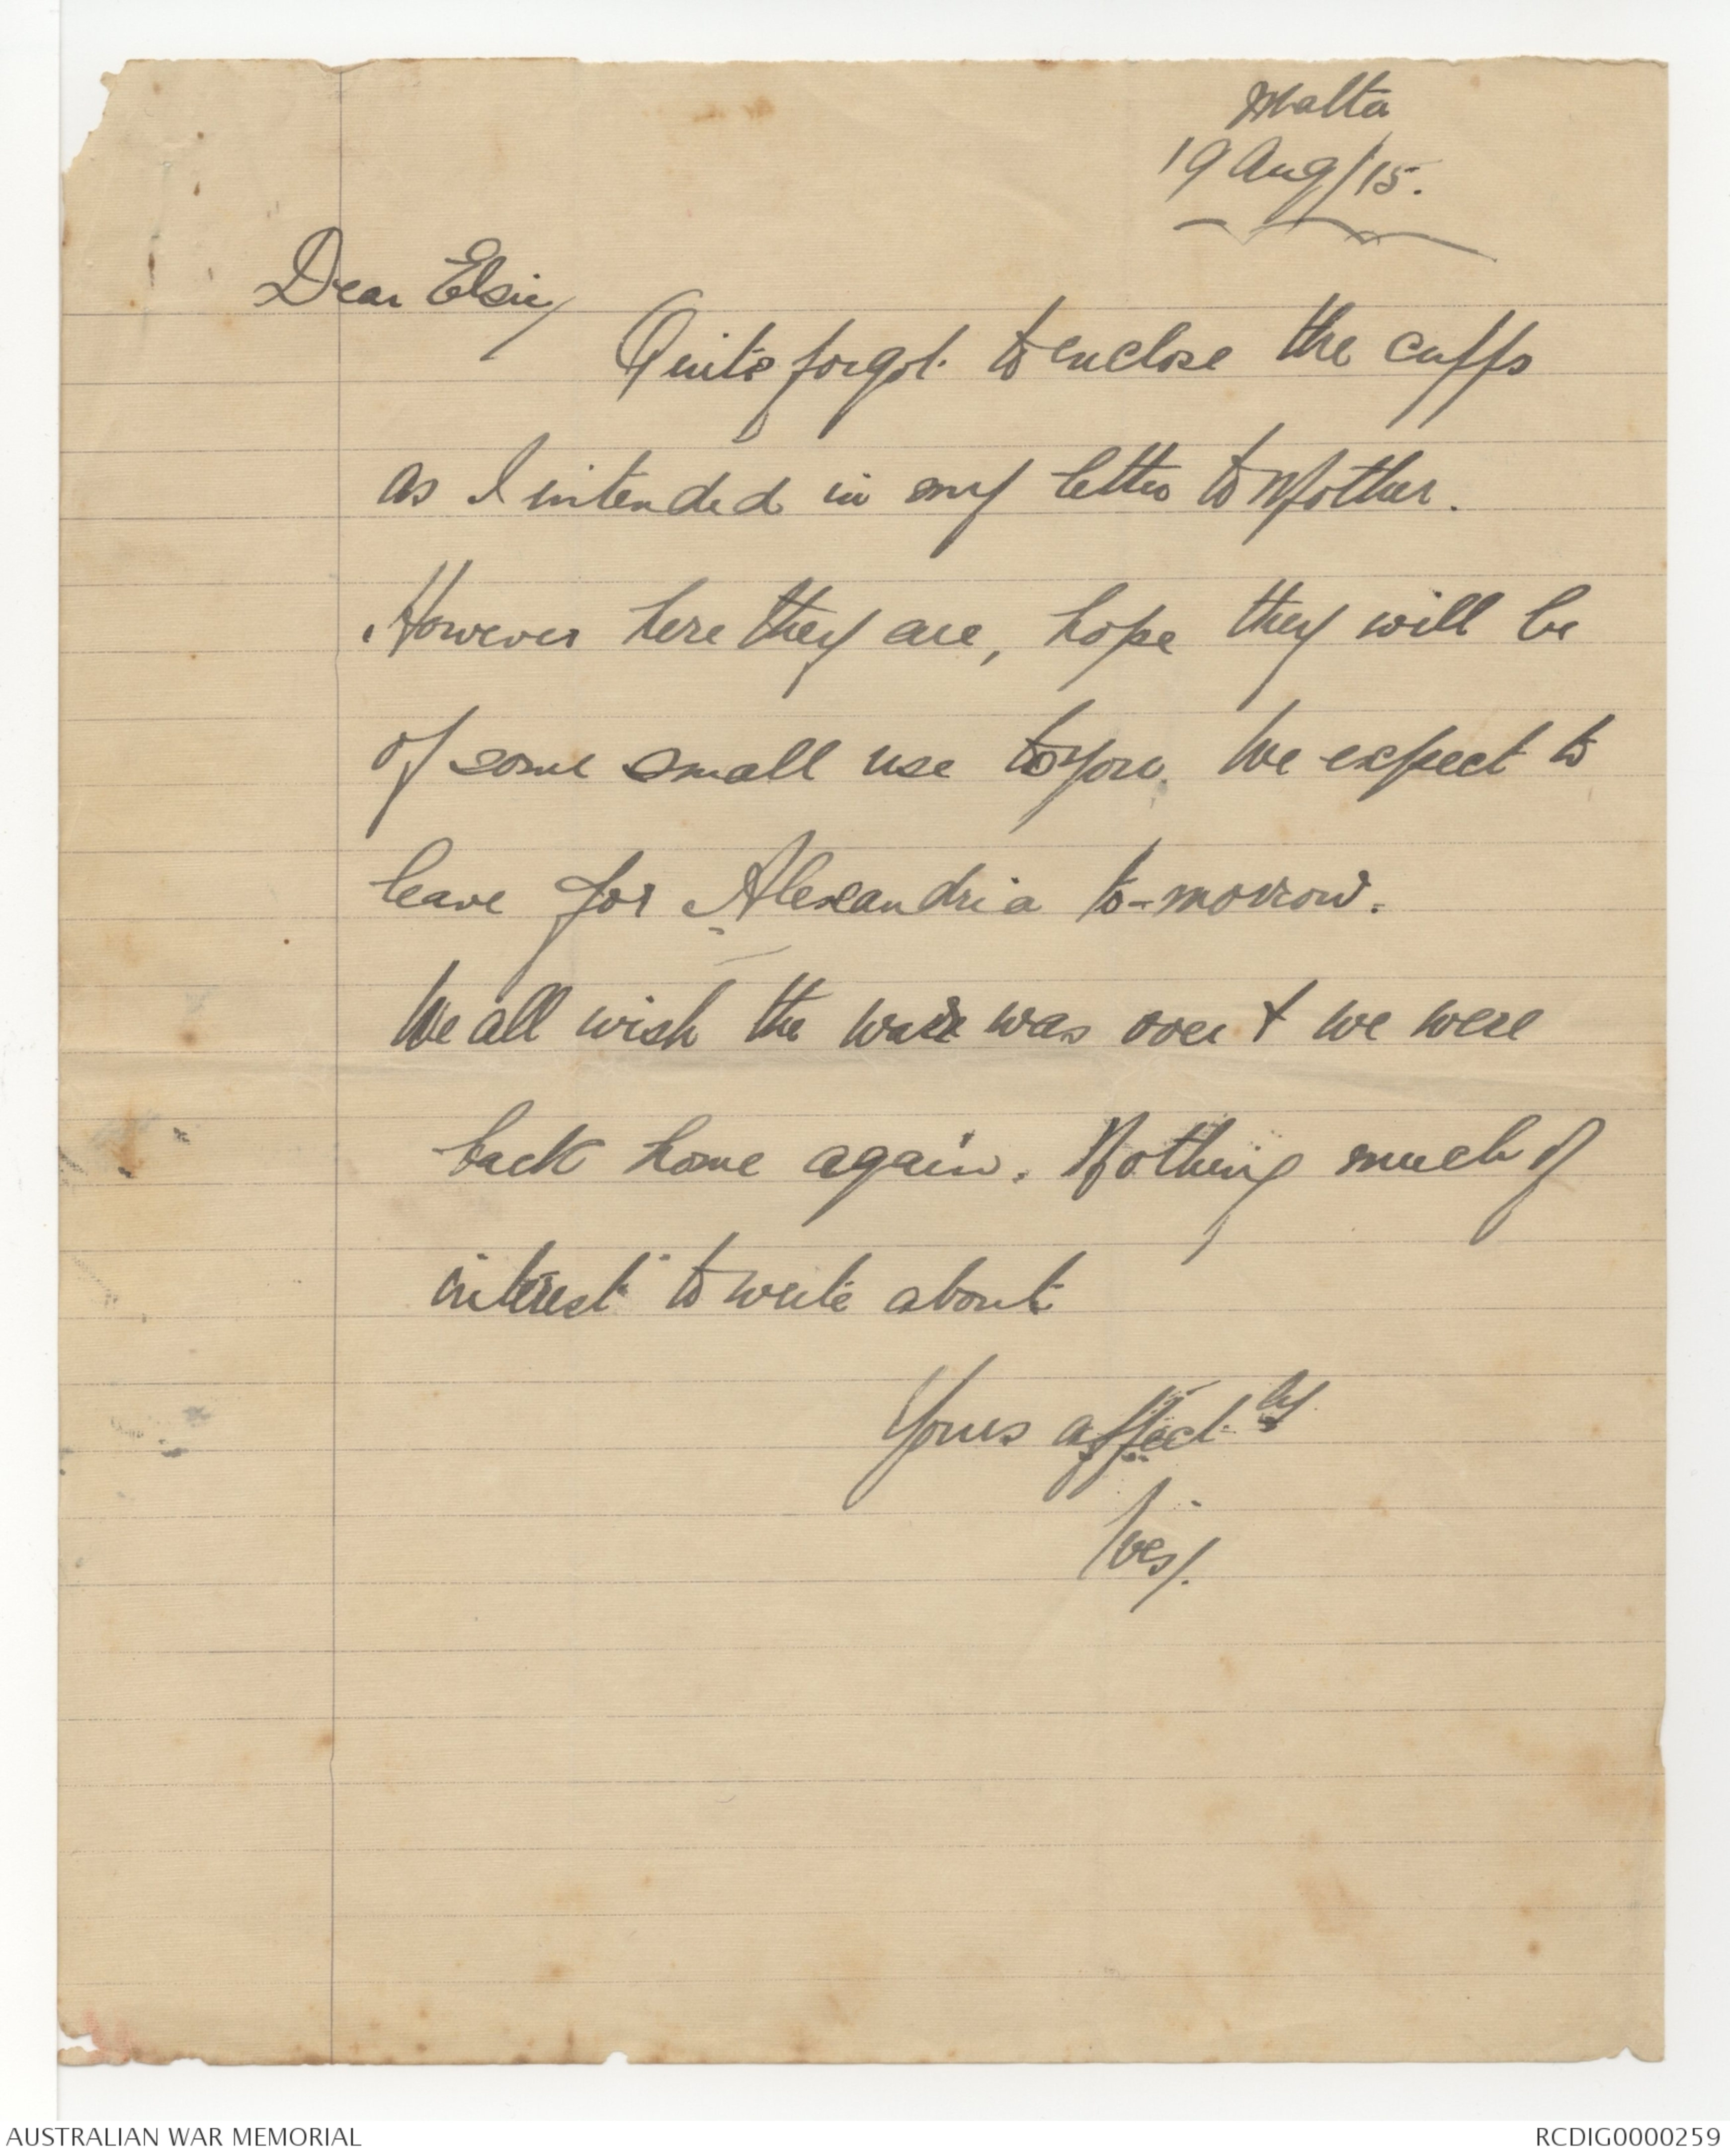 Malta
19 Aug/15.
Dear Elsie,
Quite forgot to enclose the cuffs
as I intended in my letter to Mother.
However here they are, hope they will be
of some small use to you. We expect to
leave for Alexandria to-morrow.
We all wish the was over & we were
back home again. Nothing much of
interest to write about
Yours affectly
Ves/.
AUSTRALIAN WAR MEMORIAL
RCDIG0000259